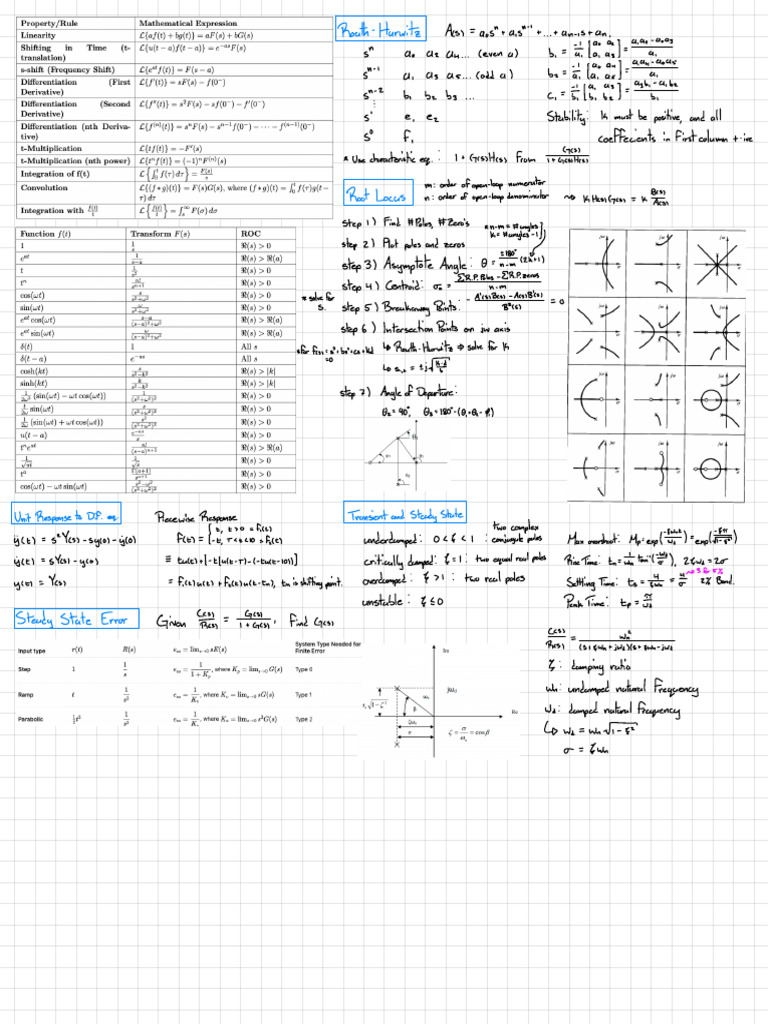 Property/Rule Mathematical Expression
Linearity L{af(t) + bg(t)} = aF(s) + bG(s)
Shifting in Time (t-translation) L{u(t − a)f(t − a)} = e^{−as}F(s)
s-shift (Frequency Shift) L{e^{at}f(t)} = F(s − a)
Differentiation (First Derivative) L{f′(t)} = sF(s) − f(0⁻)
Differentiation (Second Derivative) L{f″(t)} = s²F(s) − sf(0⁻) − f′(0⁻)
Differentiation (nth Derivative) L{f^{(n)}(t)} = s^nF(s) − s^{n−1}f(0⁻) − ⋯ − f^{(n−1)}(0⁻)
t-Multiplication L{tf(t)} = −F′(s)
t-Multiplication (nth power) L{t^n f(t)} = (−1)^n F^{(n)}(s)
Integration of f(t) L{∫₀ᵗ f(τ) dτ} = F(s)/s
Convolution L{(f ∗ g)(t)} = F(s)G(s), where (f ∗ g)(t) = ∫₀ᵗ f(τ)g(t − τ) dτ
Integration with f(t)/t L{f(t)/t} = ∫ₛ^∞ F(σ) dσ
Function f(t) Transform F(s) ROC
1 1/s ℜ(s) > 0
e^{at} 1/(s−a) ℜ(s) > ℜ(a)
t 1/s² ℜ(s) > 0
t^n n!/s^{n+1} ℜ(s) > 0
cos(ωt) s/(s²+ω²) ℜ(s) > 0
sin(ωt) ω/(s²+ω²) ℜ(s) > 0
e^{at} cos(ωt) (s−a)/((s−a)²+ω²) ℜ(s) > ℜ(a)
e^{at} sin(ωt) ω/((s−a)²+ω²) ℜ(s) > ℜ(a)
δ(t) 1 All s
δ(t − a) e^{−as} All s
cosh(kt) s/(s²−k²) ℜ(s) > |k|
sinh(kt) k/(s²−k²) ℜ(s) > |k|
(sin(ωt) − ωt cos(ωt)) ℜ(s) > 0
sin(ωt) ℜ(s) > 0
(sin(ωt) + ωt cos(ωt)) ℜ(s) > 0
u(t − a) e^{−as}/s ℜ(s) > 0
t^n e^{at} n!/(s−a)^{n+1} ℜ(s) > ℜ(a)
1/√(πt) 1/√s ℜ(s) > 0
t^a Γ(a+1)/s^{a+1} ℜ(s) > 0
cos(ωt) − ωt sin(ωt) ℜ(s) > 0
Routh-Hurwitz A(s) = a₀sⁿ + a₁sⁿ⁻¹ + ... + aₙ₋₁s + aₙ.
sⁿ a₀ a₂ a₄... (even a)
sⁿ⁻¹ a₁ a₃ a₅... (odd a)
sⁿ⁻² b₁ b₂ b₃ ...
⋮
s¹ e₁ e₂
s⁰ f₁
Stability: K must be positive, and all
coeffecients in first column +ive
* Use characteristic eq.: 1 + G(s)H(s) From G(s)/(1+G(s)H(s))
Root Locus
m: order of open-loop numerator
n: order of open-loop denominator
↝ K H(s)G(s) = K B(s)/A(s)
step 1) Find #Poles, #Zero's
* n-m = # angles
K = # angles - 1
step 2) Plot poles and zeros
step 3) Asymptote Angle: θ = ±180°/(n-m) (2K+1)
step 4) Centroid: σₐ = (ΣR.P. Poles − ΣR.P. zeros)/(n-m)
* solve for s.
step 5) Breakaway Points: − (A'(s)B(s) − A(s)B'(s))/B²(s) = 0
step 6) Intersection Points on jw axis
↳ Routh-Hurwitz ⇒ solve for K
step 7) Angle of Departure:
θ₂ = 90°, θ₃ = 180° - (θ₁ + θ₂ - ∅)
Unit Response to D.f. eq.
ÿ(t) = s²Y(s) - sy(0) - ẏ(0)
ẏ(t) = sY(s) - y(0)
y(t) = Y(s)
Piecewise Response
Transient and Steady State
underdamped: 0 < ξ < 1 : two complex conjugate poles
critically damped: ξ = 1 : two equal real poles
overdamped: ξ > 1 : two real poles
unstable: ξ ≤ 0
Settling Time: ts = 4/ξωn = 4/σ 2% Band.
Peak Time: tp = π/ωd
Steady State Error
Given C(s)/R(s) = G(s)/(1+G(s)), find G(s)
Input type r(t) R(s) e_ss = lim_{s→0} sE(s) System Type Needed for Finite Error
Step 1 1/s e_ss = 1/(1 + K_p), where K_p = lim_{s→0} G(s) Type 0
Ramp t 1/s² e_ss = 1/K_v, where K_v = lim_{s→0} sG(s) Type 1
Parabolic ½t² 1/s³ e_ss = 1/K_a, where K_a = lim_{s→0} s²G(s) Type 2
C(s)/R(s) = ωn²/((s + ξωn + jωd)(s + ξωn − jωd))
ξ: damping ratio
ωn: undamped natural frequency
ωd: damped natural frequency
↳ ωd = ωn√(1-ξ²)
σ = ξωn